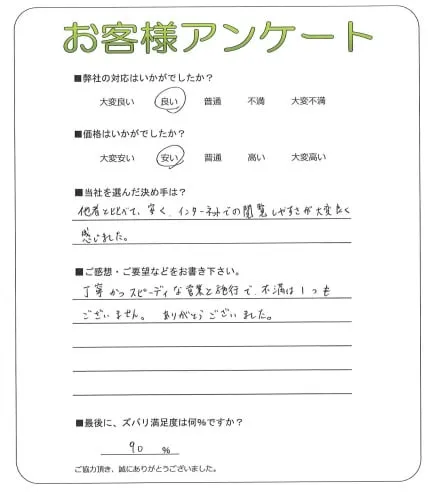 お客様アンケート
■弊社の対応はいかがでしたか?
大変良い 良い 普通 不満 大変不満
■価格はいかがでしたか?
大変安い 安い 普通 高い 大変高い
■当社を選んだ決め手は?
他者と比べて、安く、インターネットでの閲覧しやすさが大変良く
感じました。
■ご感想・ご要望などをお書き下さい。
丁寧かつスピーディな営業と施行で、不満は1つも
ございません。 ありがとうございました。
■最後に、ズバリ満足度は何%ですか?
90 %
ご協力頂き、誠にありがとうございました。